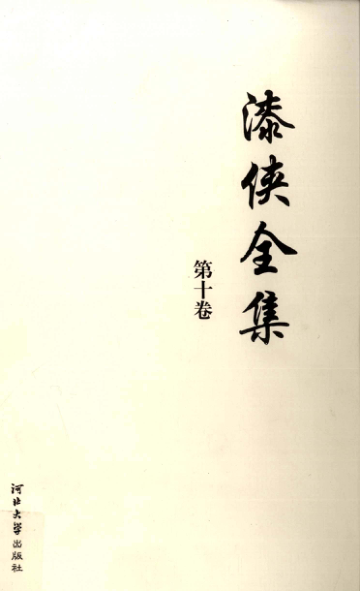 漆侠全集
第十卷
河北大学出版社